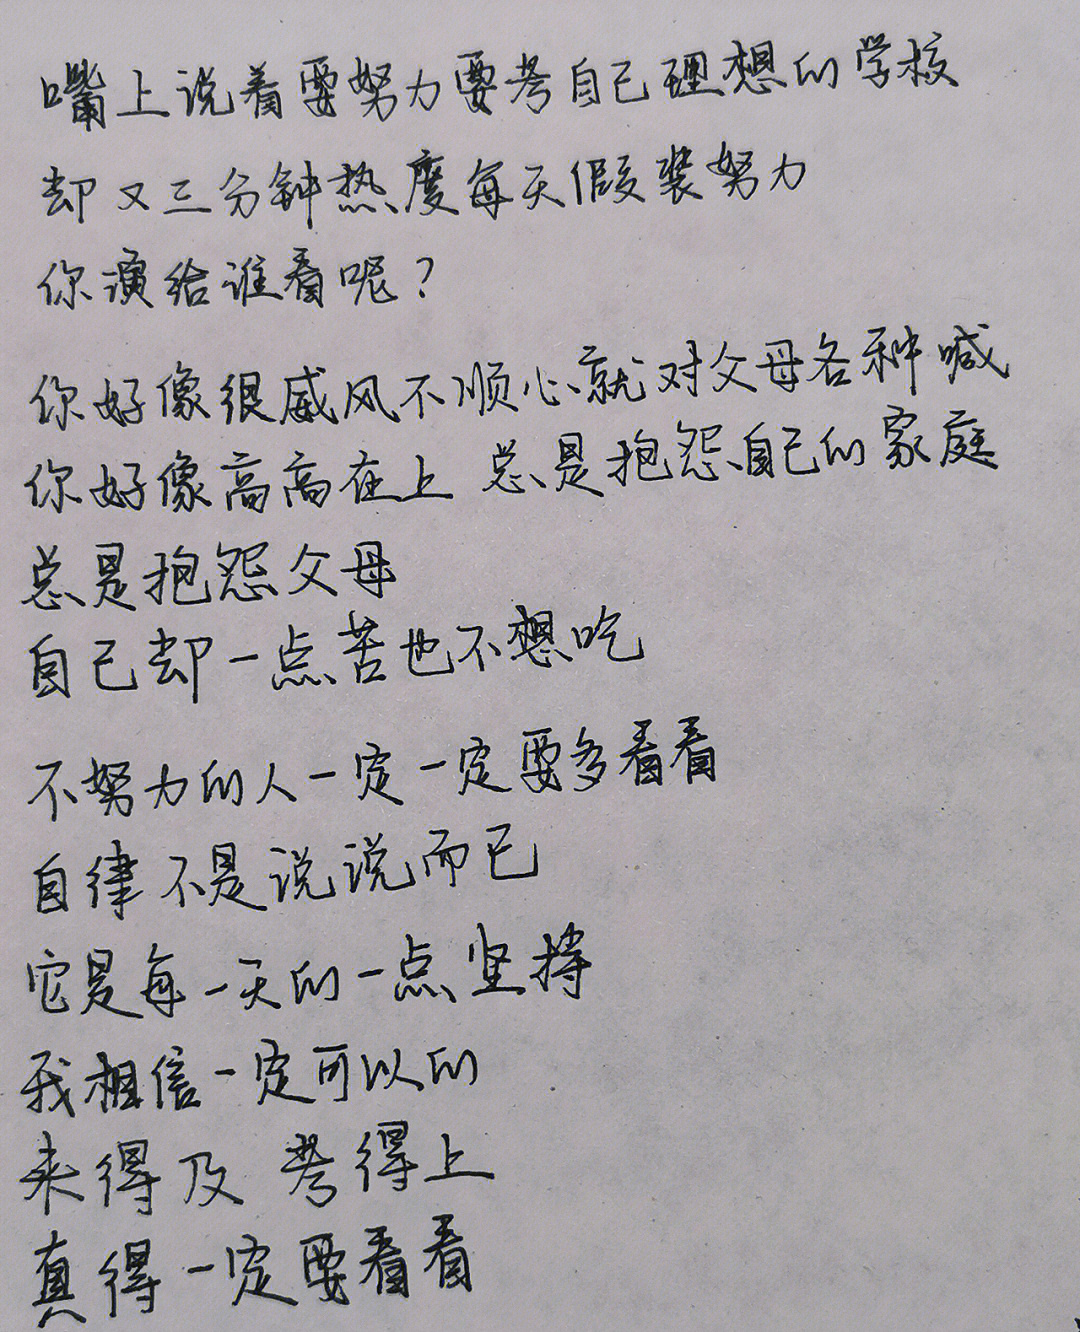 嘴上说着要努力要考自己理想的学校
却又三分钟热度每天假装努力
你演给谁看呢?
你好像很威风不顺心就对父母各种喊
你好像高高在上 总是抱怨自己的家庭
总是抱怨父母
自己却一点苦也不想吃
不努力的人一定一定要多看看
自律不是说说而已
它是每一天的一点坚持
我相信一定可以的
来得及 考得上
真得一定要看看